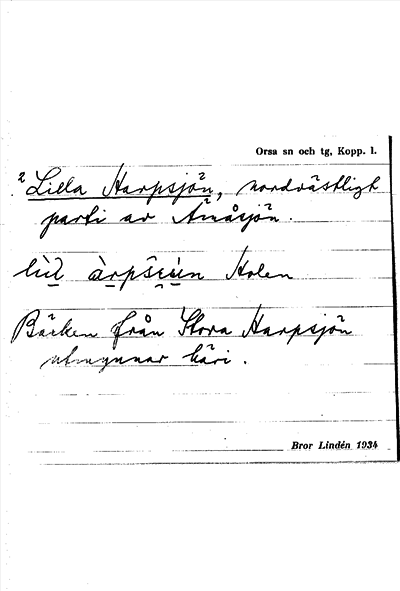 Orsa sn och tg, Kopp. l.
2 Lilla Harpsjön, nordvästligt
parti av Åmåsjön.
Holen
Bäcken från Stora Harpsjön
utmynnar häri.
Bror Lindén 1934